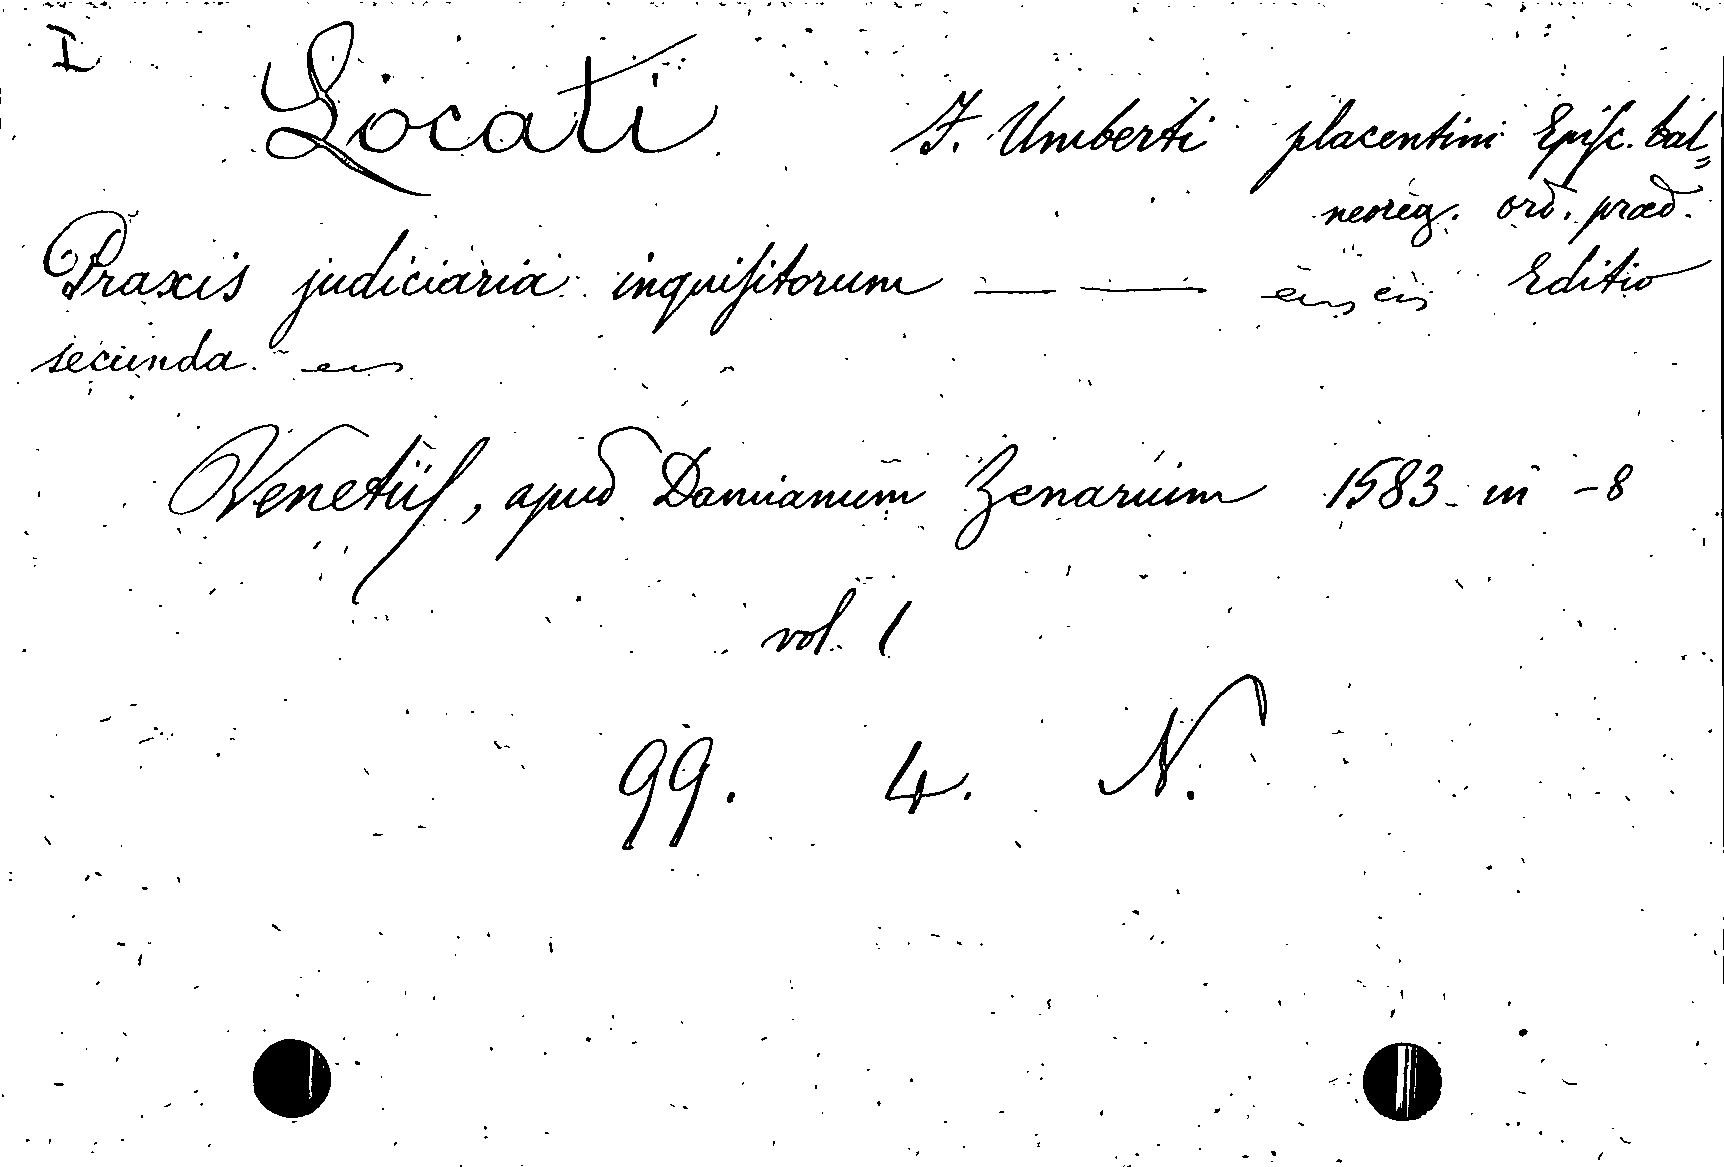 I
Locati F. Umberti placentini Episc. bal=
neoreg. ord. præd.
Praxis judiciaria inquisitorum — — Editio
secunda
Venetiis, apud Damianum Zenarium 1583 in -8
vol. 1
99. 4. N.